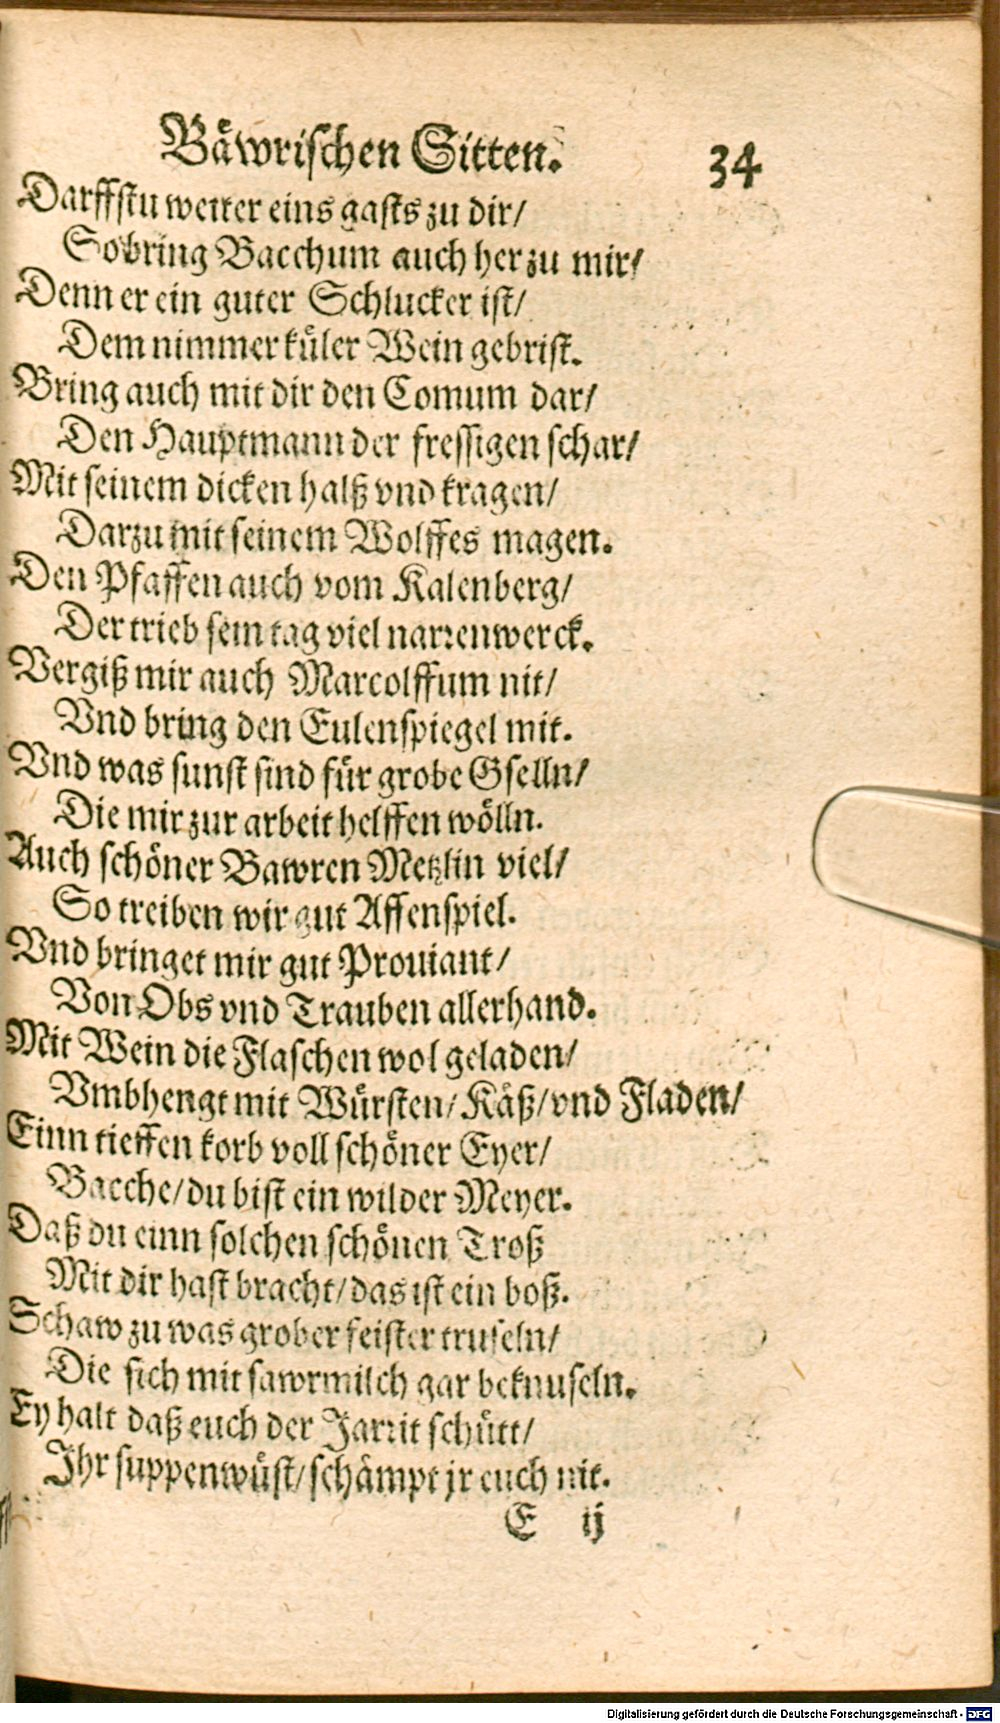 Bäwrischen Sitten. 34
Darffstu weiter eins gasts zu dir/
So bring Bacchum auch her zu mir/
Denn er ein guter Schlucker ist/
Dem nimmer küler Wein gebrist.
Bring auch mit dir den Comum dar/
Den Hauptmann der fressigen schar/
Mit seinem dicken halß vnd kragen/
Darzu mit seinem Wolffes magen.
Den Pfaffen auch vom Kalenberg/
Der trieb sein tag viel narrenwerck.
Vergiß mir auch Marcolffum nit/
Vnd bring den Eulenspiegel mit.
Vnd was sunst sind für grobe Gselln/
Die mir zur arbeit helffen wölln.
Auch schöner Bawren Metzlin viel/
So treiben wir gut Affenspiel.
Vnd bringet mir gut Prouiant/
Von Obs vnd Trauben allerhand.
Mit Wein die Flaschen wol geladen/
Vmbhengt mit Würsten/ Käß/ vnd Fladen/
Einn tieffen korb voll schöner Eyer/
Bacche/ du bist ein wilder Meyer.
Daß du einn solchen schönen Troß
Mit dir hast bracht/ das ist ein boß.
Schaw zu was grober feister truseln/
Die sich mit sawrmilch gar beknuseln.
Ey halt daß euch der Jarrit schütt/
Ihr suppenwüst/ schämpt jr euch nit.
E ij
Digitalisierung gefördert durch die Deutsche Forschungsgemeinschaft - DFG